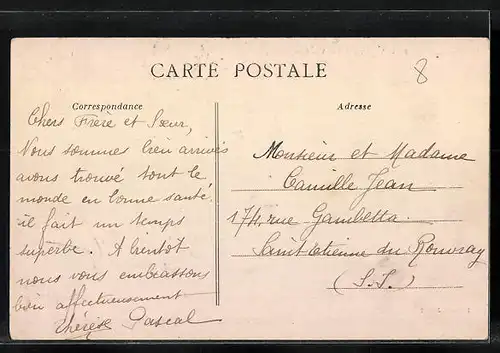 CARTE POSTALE
8
Correspondance
Adresse
Chers Frère et Sœur,
Nous sommes bien arrivés
avons trouvé tout le
monde en bonne santé
il fait un temps
superbe. A bientot
nous vous embrassons
bien affectueusement
Thérèse Pascal
Monsieur et Madame
Camille Jean
174, rue Gambetta
Saint Etienne du Rouvray
(S.I.)